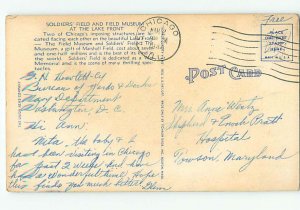 SOLDIERS' FIELD AND FIELD MUSEUM
AT THE LAKE FRONT
Two of Chicago's imposing structures are lo-
cated facing each other on the beautiful Lake
The Field Museum and Soldiers' Field
a gift of Marshall Field, cost about
and one-half millions and is the best of its
in the world. Soldiers' Field is dedicated as a War
Memorial and is the scene of many thrilling spec-
CHICAGO
Free
PLACE
STAMP
HERE
POST CARD
Bureau of Yards & Docks
Navy Department
Washington, D.C.
Dear Ann.
Meta, the baby & I
have been visiting in Chicago
for past 2 weeks. And have
had a wonderful time. Hope
this finds you much better. Glenn
Miss Anne Wentz
Sheppard & Enoch Pratt
Hospital
Towson, Maryland